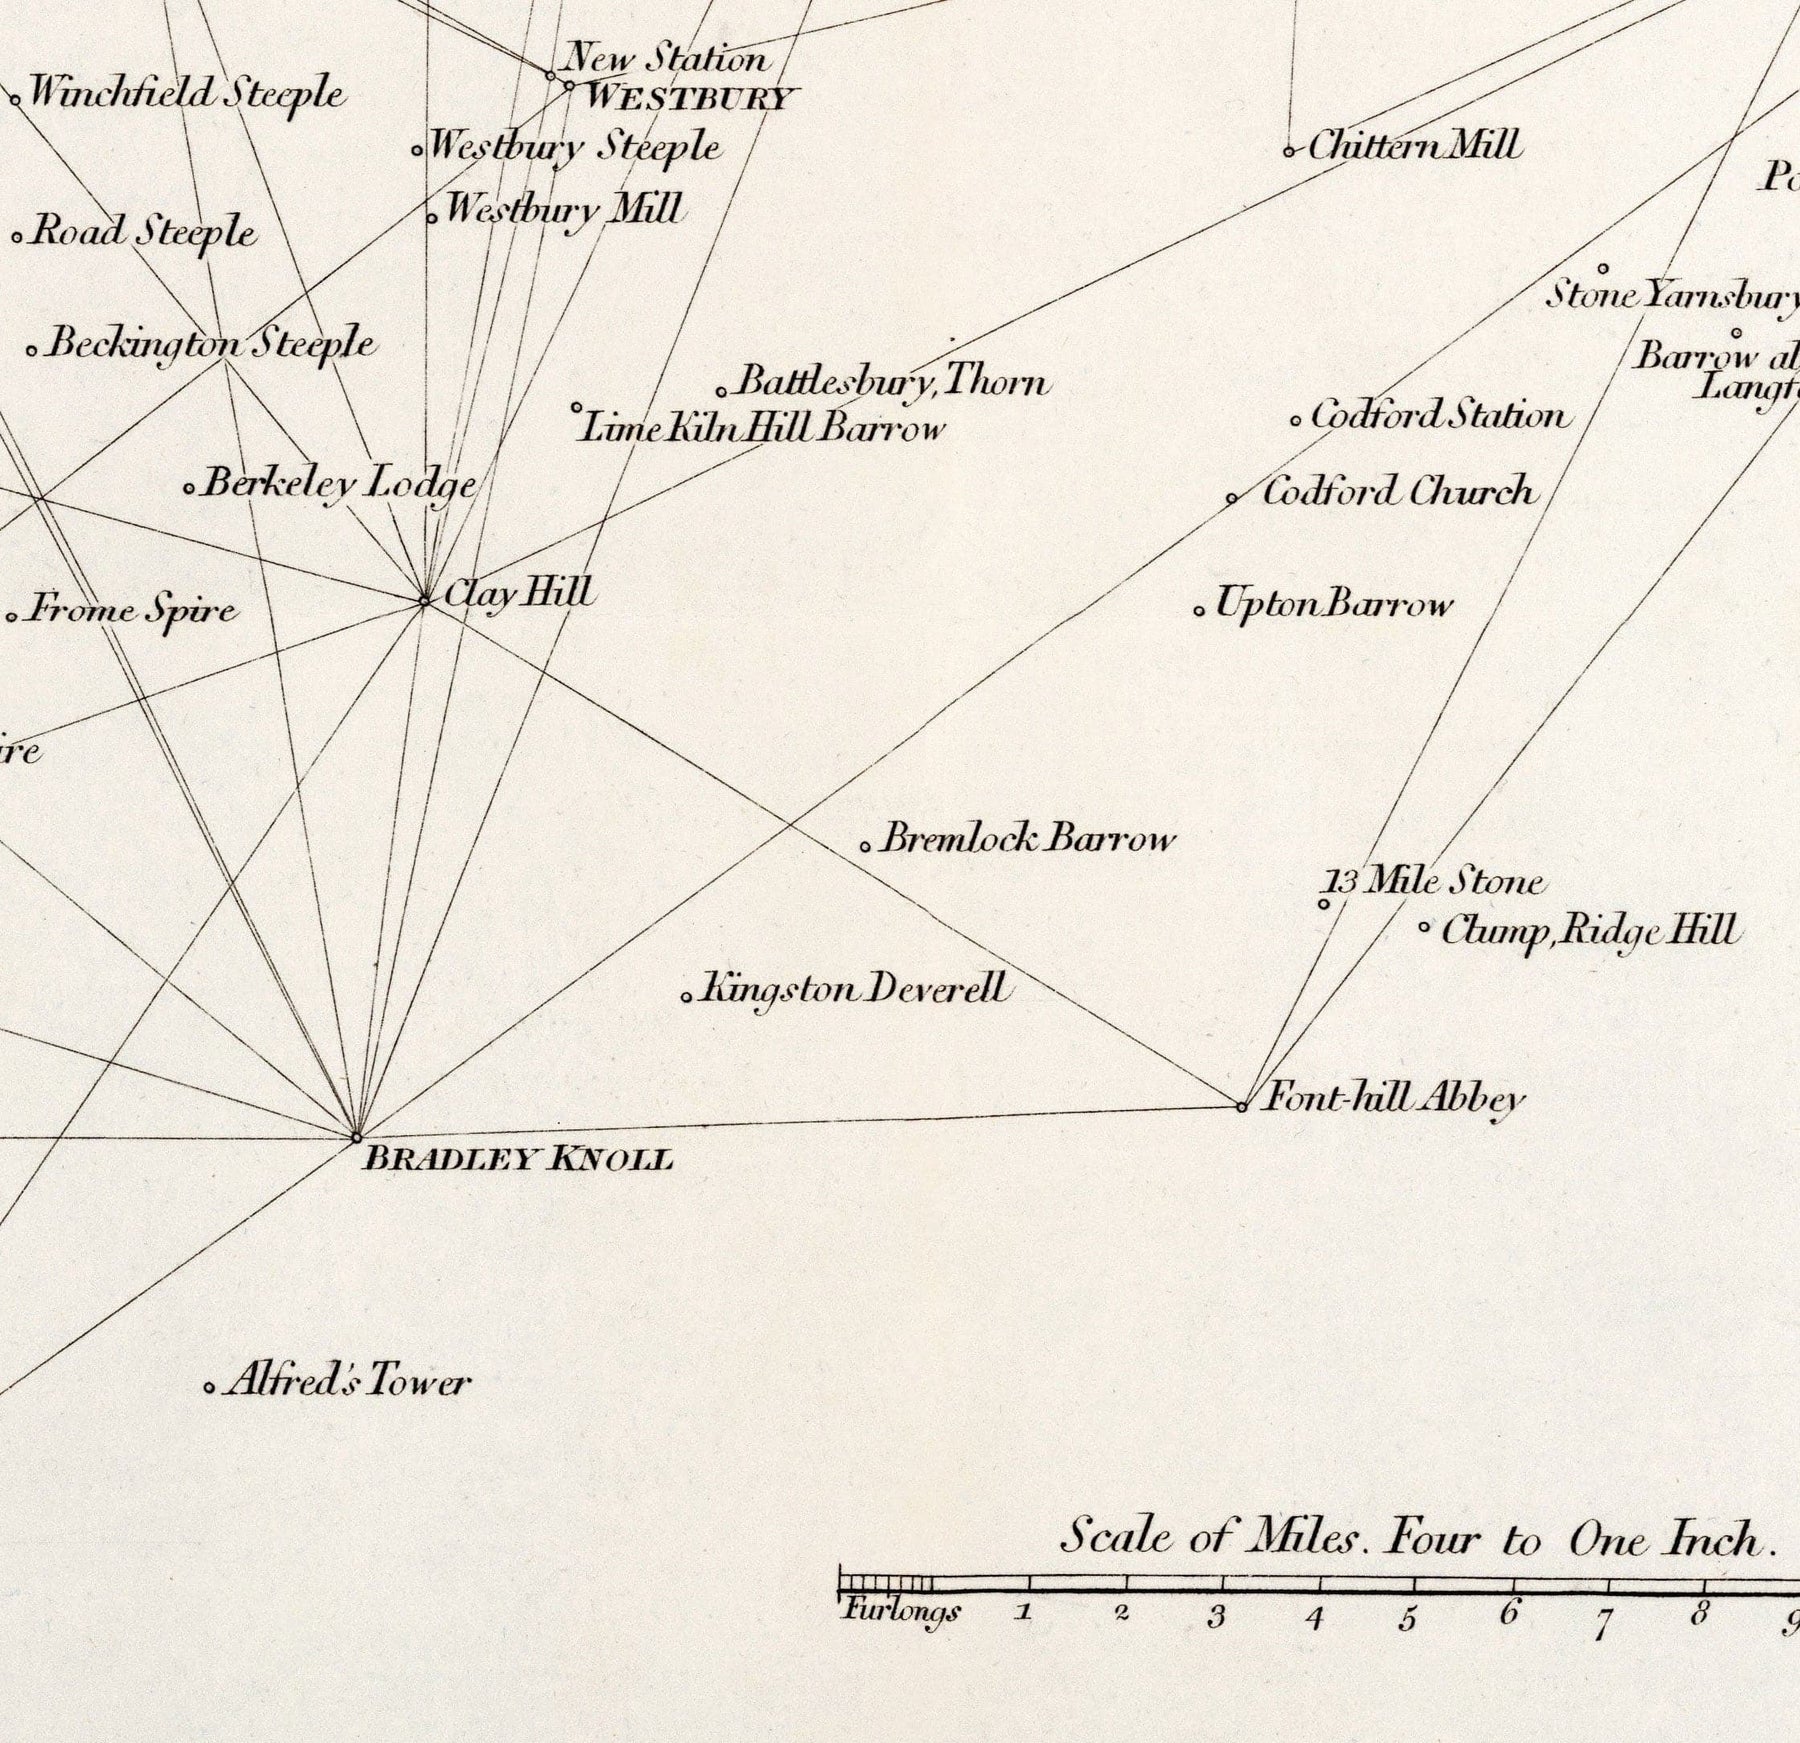 New Station
WESTBURY
Winchfield Steeple
Westbury Steeple
Chittern Mill
Westbury Mill
Road Steeple
Stone Yarnsbury
Beckington Steeple
Barrow
Battlesbury, Thorn
Lime Kiln Hill Barrow
Codford Station
Berkeley Lodge
Codford Church
Clay Hill
Frome Spire
Upton Barrow
Bremlock Barrow
13 Mile Stone
Clump, Ridge Hill
Kingston Deverell
Font-hill Abbey
BRADLEY KNOLL
Alfred's Tower
Scale of Miles. Four to One Inch.
Furlongs 1 2 3 4 5 6 7 8 9